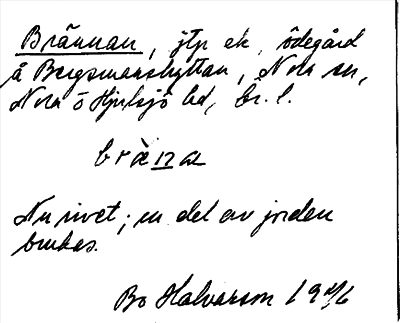 Brännan, jtp ek, ödegård
å Bergsmanshyttan, Nora sn,
Nora ö Hjulsjö bd, Ör. l.
Nu rivet; en del av jorden
brukas.
Bo Halvarson 19